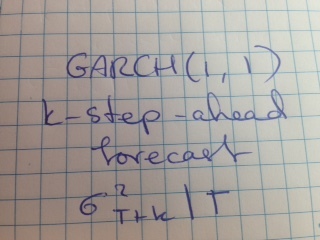 GARCH(1,1)
k-step-ahead
forecast
σ²_{T+k|T}